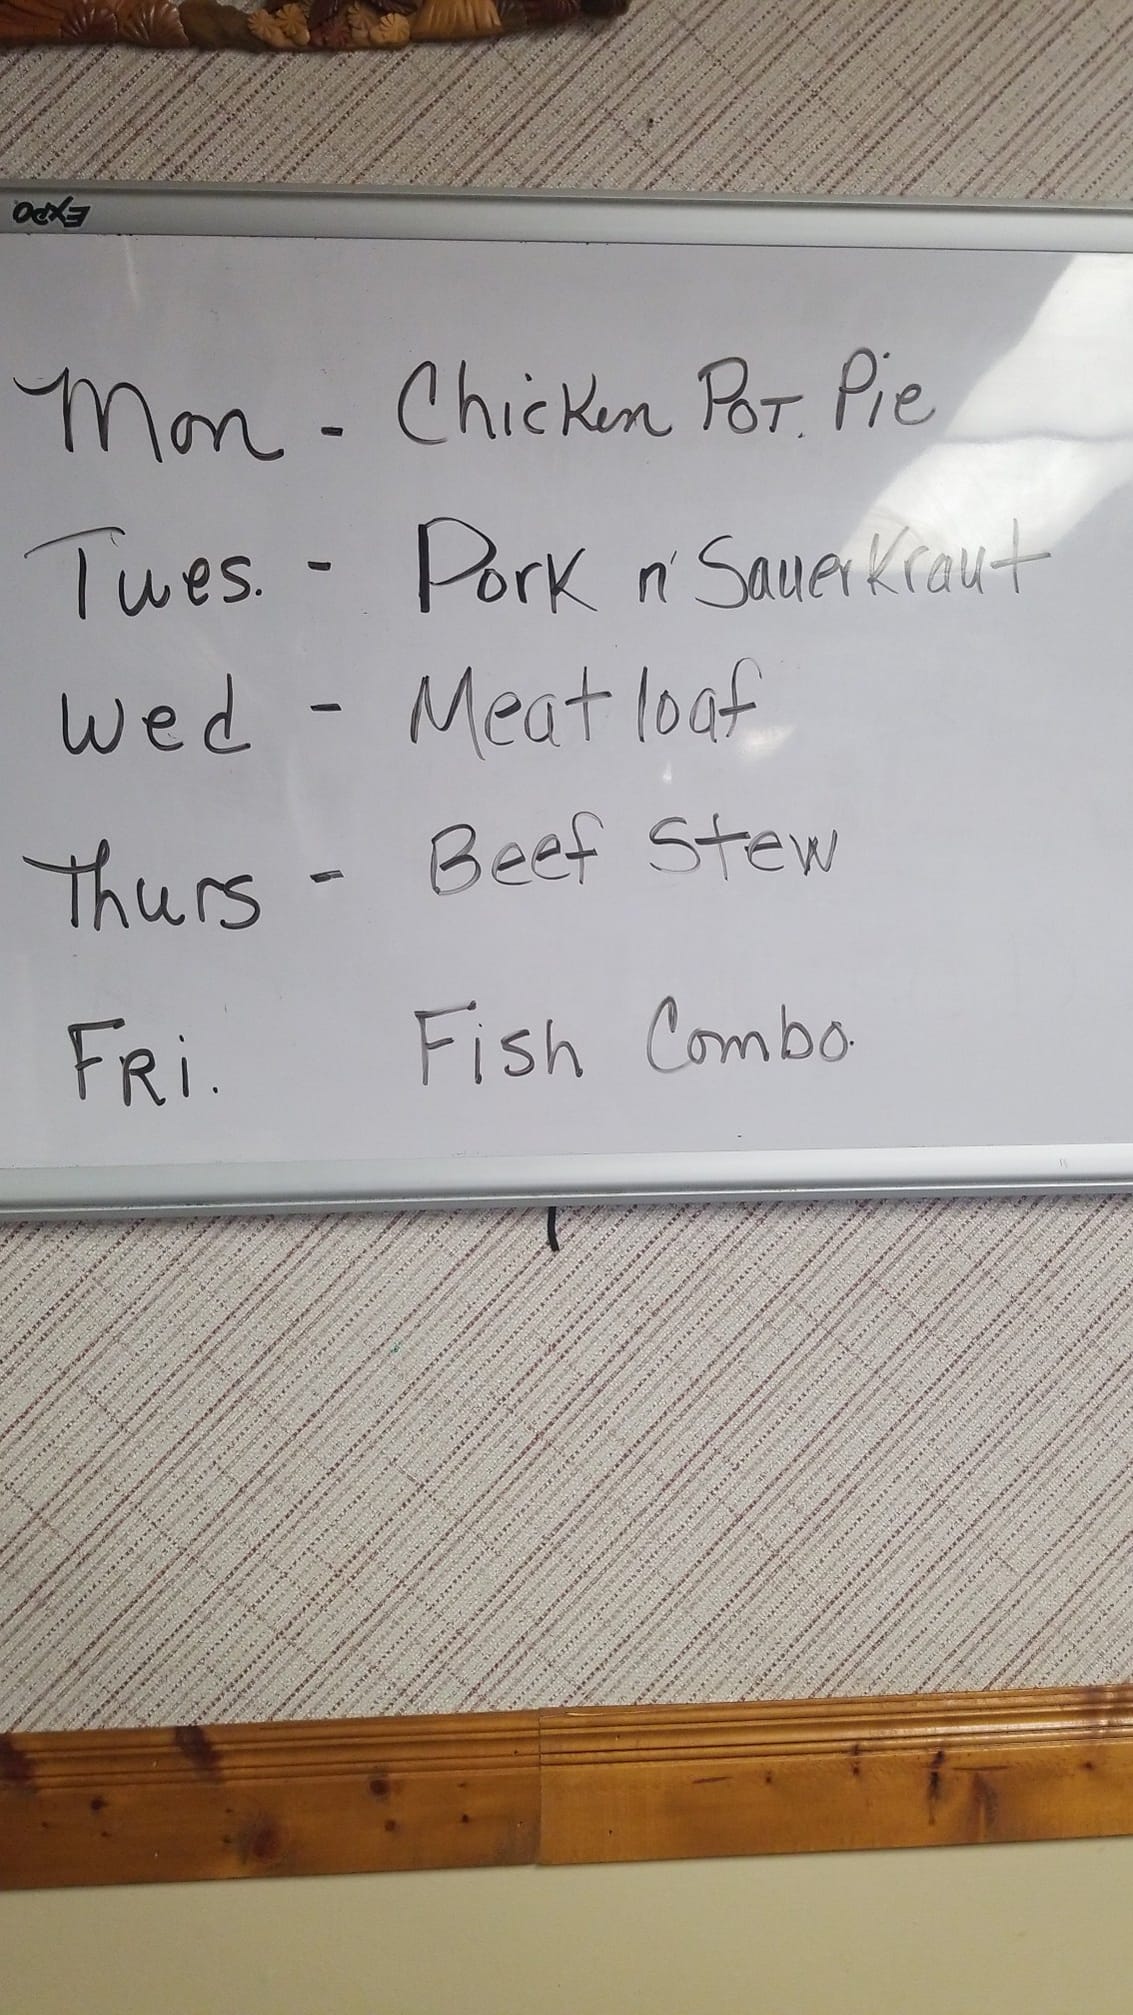 EXPO
Mon - Chicken Pot. Pie
Tues. - Pork n' Sauerkraut
Wed - Meat loaf
Thurs - Beef Stew
FRi. Fish Combo.